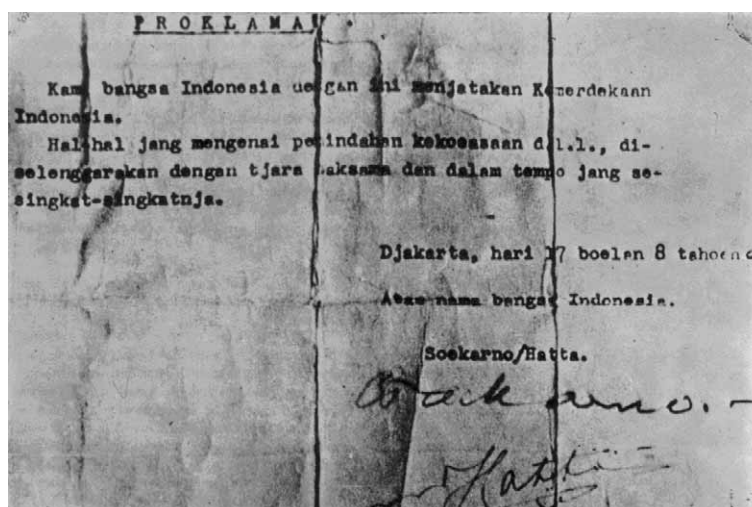 P R O K L A M A
Kami bangsa Indonesia dengan ini menjatakan Kemerdekaan
Indonesia.
Hal-hal jang mengenai pemindahan kekoeasaan d.l.l., di-
selenggarakan dengan tjara saksama dan dalam tempo jang se-
singkat-singkatnja.
Djakarta, hari 17 boelan 8 tahoen
Atas nama bangsa Indonesia.
Soekarno/Hatta.
Soekarno.
Hatta